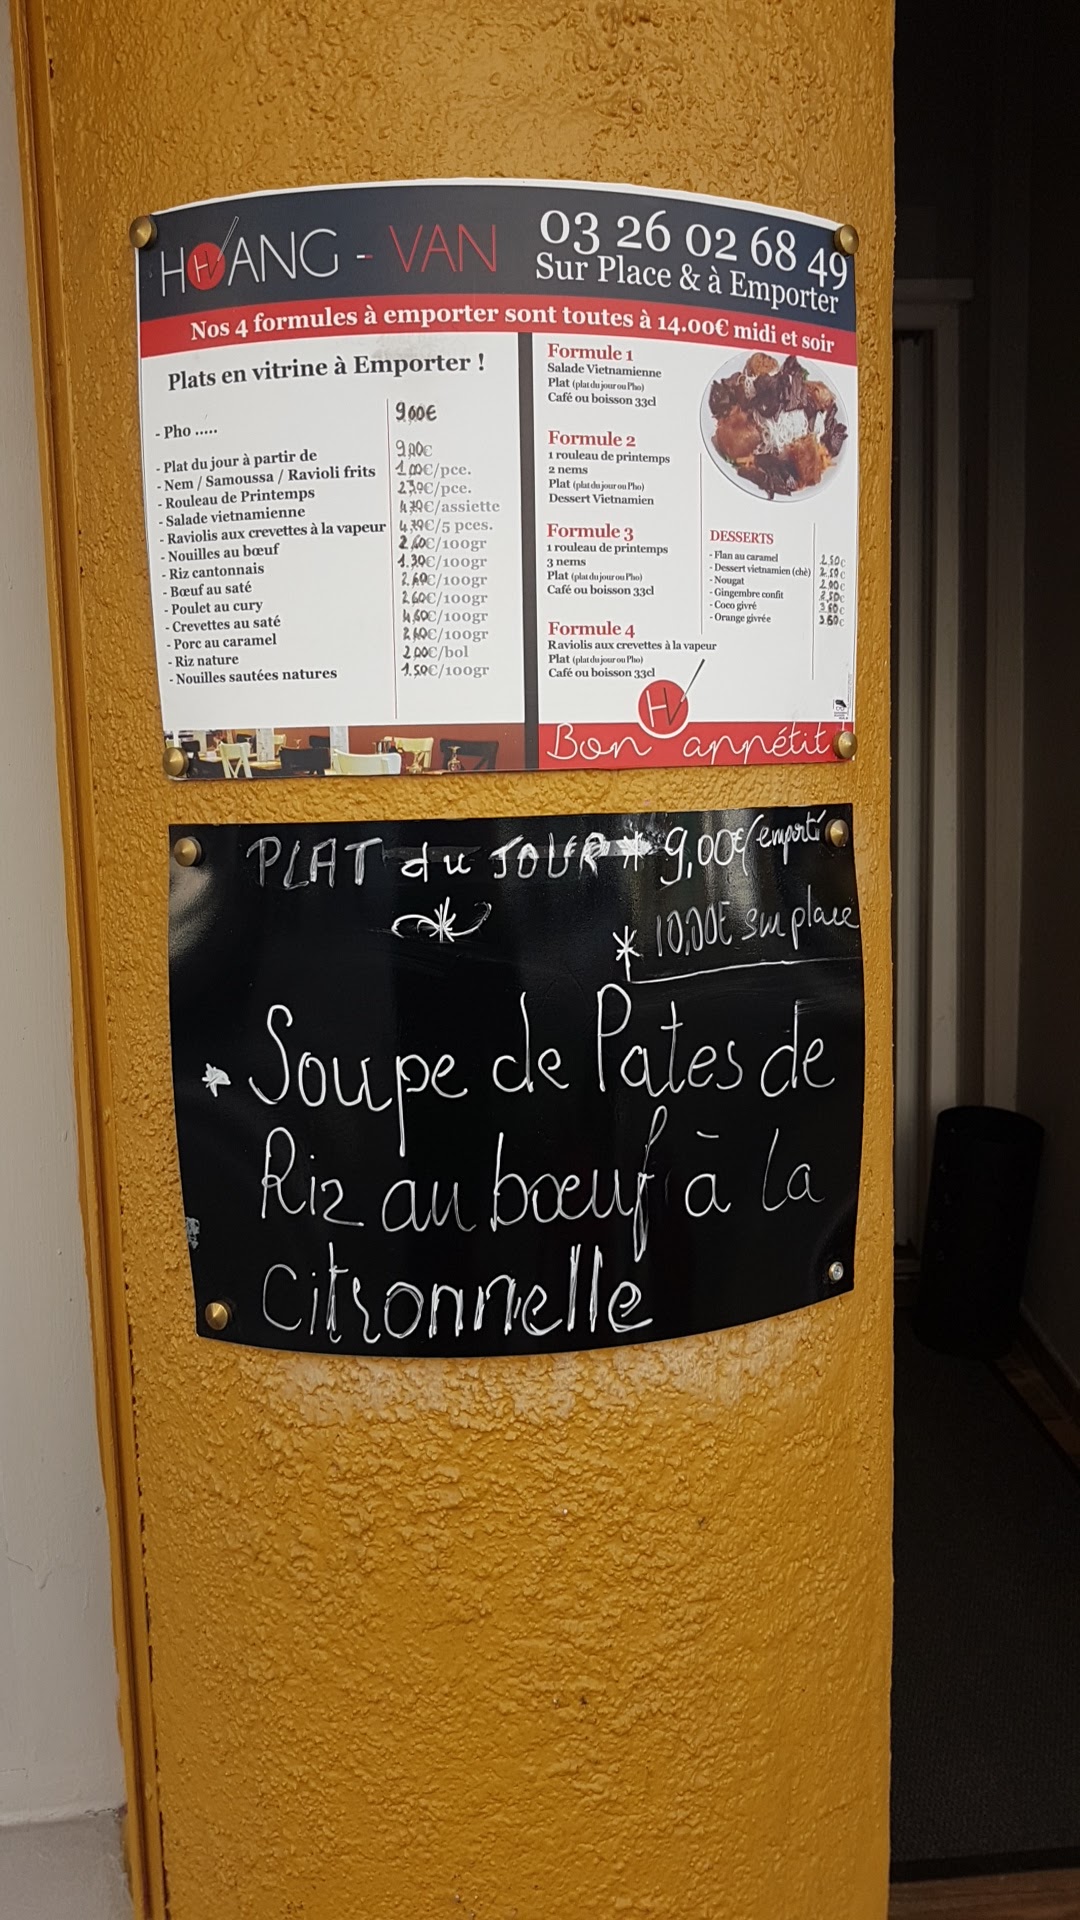 HOANG - VAN
03 26 02 68 49
Sur Place & à Emporter
Nos 4 formules à emporter sont toutes à 14.00€ midi et soir
Plats en vitrine à Emporter !
- Pho ..... 9,00€
- Plat du jour à partir de 9,00€
- Nem / Samoussa / Ravioli frits 1.00€/pce.
- Rouleau de Printemps €/pce.
- Salade vietnamienne €/assiette
- Raviolis aux crevettes à la vapeur €/5 pces.
- Nouilles au bœuf 2,60€/100gr
- Riz cantonnais 1.30€/100gr
- Bœuf au saté 2.60€/100gr
- Poulet au cury 2,60€/100gr
- Crevettes au saté 4,60€/100gr
- Porc au caramel 2,60€/100gr
- Riz nature 2,00€/bol
- Nouilles sautées natures 1.50€/100gr
Formule 1
Salade Vietnamienne
Plat (plat du jour ou Pho)
Café ou boisson 33cl
Formule 2
1 rouleau de printemps
2 nems
Plat (plat du jour ou Pho)
Dessert Vietnamien
Formule 3
1 rouleau de printemps
3 nems
Plat (plat du jour ou Pho)
Café ou boisson 33cl
Formule 4
Raviolis aux crevettes à la vapeur
Plat (plat du jour ou Pho)
Café ou boisson 33cl
DESSERTS
- Flan au caramel 2,50€
- Dessert vietnamien (chè) 2,50€
- Nougat 2,00€
- Gingembre confit 2,50€
- Coco givré 3,60€
- Orange givrée 3,60€
HV
Bon appétit
PLAT du JOUR * 9,00€/emporté
* 10,00€ sur place
* Soupe de Pates de
Riz au bœuf à la
Citronnelle